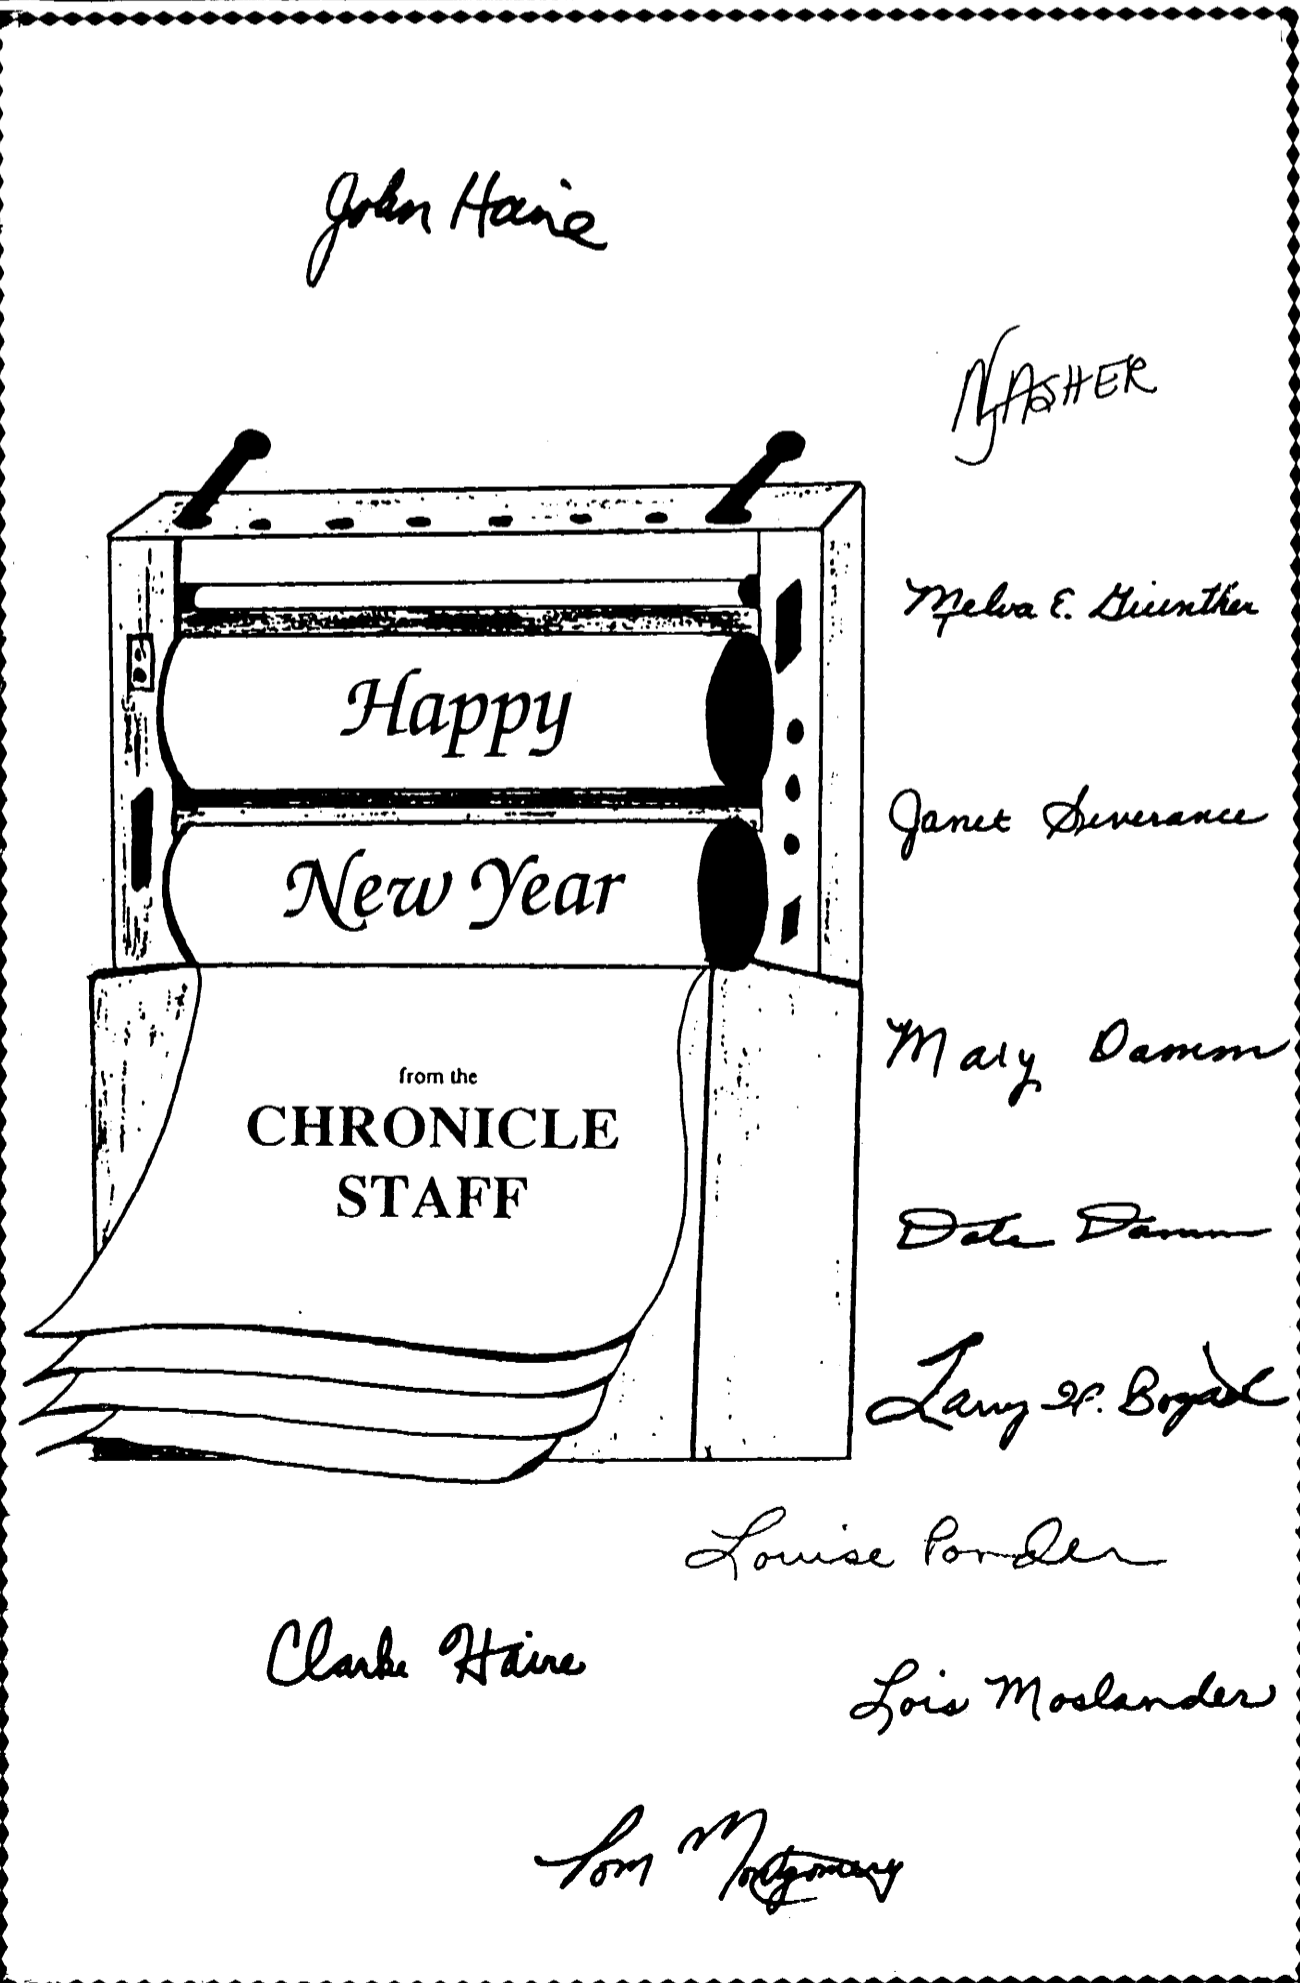 John Haire
NJ ASHER
Melva E. Guenther
Happy
Janet Severance
New Year
Mary Damm
from the
CHRONICLE
STAFF
Damm
Larry
Louise Ponder
Clarke Haire
Lois Moslander
Tom Montgomery